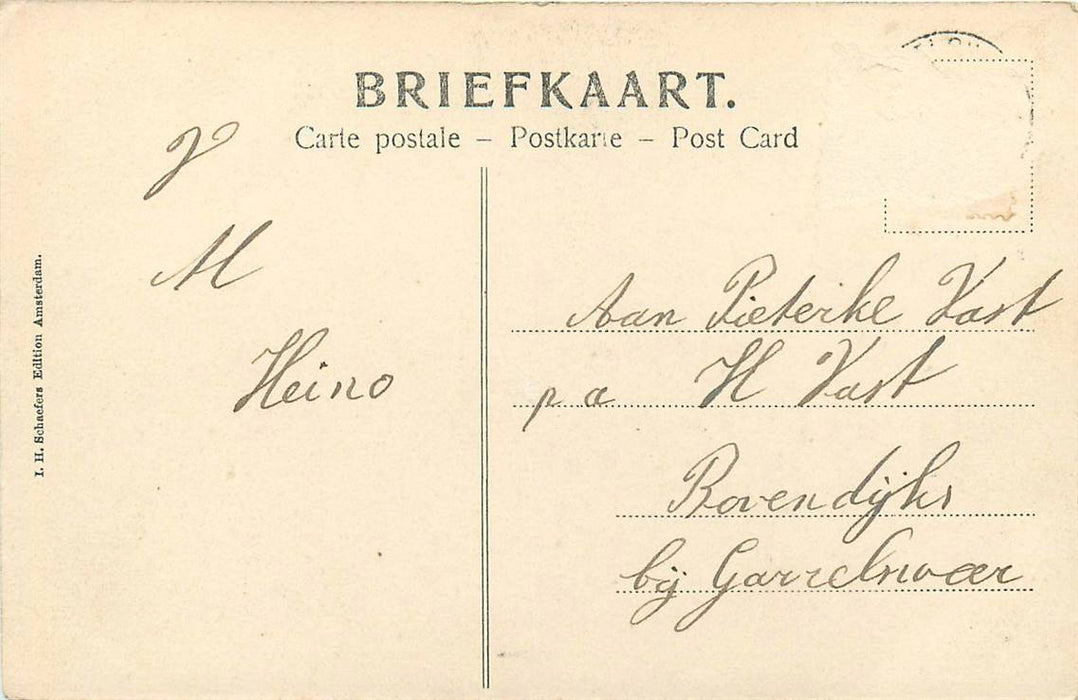 BRIEFKAART.
Carte postale – Postkarte – Post Card
V
M
Heino
I. H. Schaefers Edition Amsterdam.
Aan Pieterke Vast
p a H Vast
Bovendijks
bij Garrelsweer